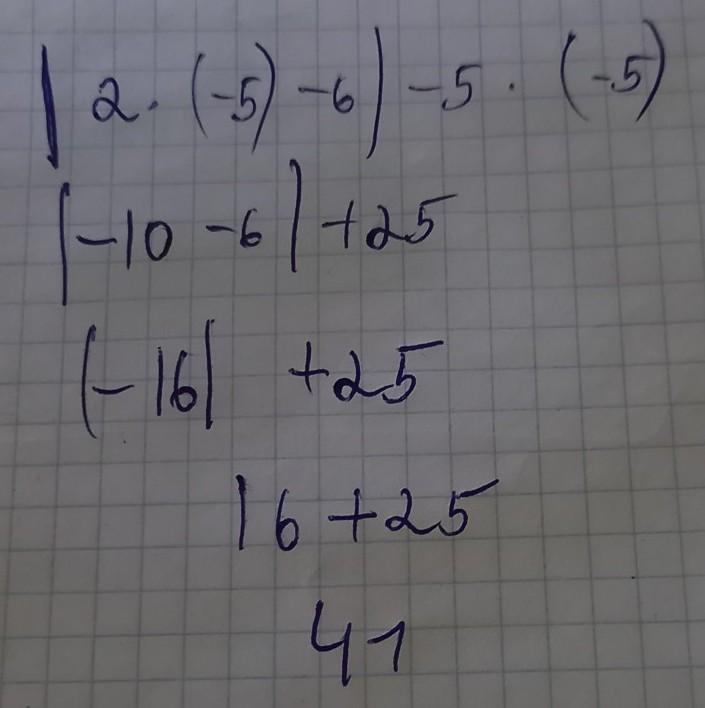 | 2 · (-5) - 6 | - 5 · (-5)
| -10 - 6 | + 25
| -16 | + 25
16 + 25
41